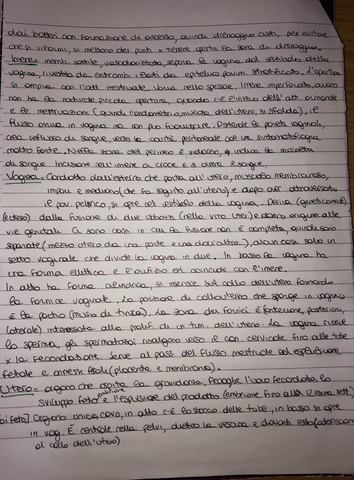 dai batteri con formazione di ascesso, quindi drenaggio cisti, per evitare
che si riformi, si mettono dei punti x tenere aperta la zona di drenaggio.
Imene= memb. sottile, vascolarizzata, separa la vagina dal vestibolo della
vagina, rivestita da entrambi i lati da epitelio pavim. stratificato. L'apertura
si amplia con l'att. mestruale. Varia nello spessore. Imene imperforato, quando
non ha la naturale piccola apertura, quando c'è l'inizio dell'att. ormonale
e le mestruazioni (quindi l'endometrio, mucosa dell'utero, si sfalda), il
flusso arriva in vagina ma non può fuoriuscire. Distende le pareti vaginali,
crea reflusso di sangue, verso la cavità peritoneale con una sintomatologia
molto forte. Nella zona del perineo è violaceo, indica la raccolta
di sangue. Incisione nell'imene a croce e si drena il sangue.
Vagina= Condotto dall'esterno che porta all'utero, muscolo membranoso,
impari e mediano (che fa seguito all'utero) e dopo aver attraversato
il pav. pelvico, si apre nel vestibolo della vagina. Deriva (geneticamente)
(utero) dalla fusione di due abbozzi (nella vita uter.) e danno origine alle
vie genitali. Ci sono casi in cui la fusione non è completa, quindi sono
separate (mezzo utero da una parte e una dall'altra), alcuni casi solo un
setto vaginale che divide la vagina in due. In basso la vagina ha
una forma ellittica e l'orifizio est coincide con l'imene.
In alto ha forma cilindrica, si inserisce sul collo dell'utero formando
la fornice vaginale. La porzione di collo utero che sporge in vagina
è la portio (muso di tinca). La zona dei fornici è (anteriore, posteriore,
laterale) interessata alla prolif di un tum. dell'utero. La vagina riceve
lo sperma, gli spermatozoi risalgono verso il can cervicale fino alle tube
x la fecondazione. Serve al pass del flusso mestruale ed espulsione
fetale e annessi fetali (placenta e membrane).
Utero= organo che ospita la gravidanza. Accoglie l'uovo fecondato, lo
sviluppo fetale embrione e l'espulsione del prodotto (embrione fino alla 12esima sett)
poi feto] Organo unico, cavo, in alto c'è lo sbocco delle tube, in basso si apre
in vag. È centrale nella pelvi, dietro la vescica e davanti retto
al collo dell'utero)